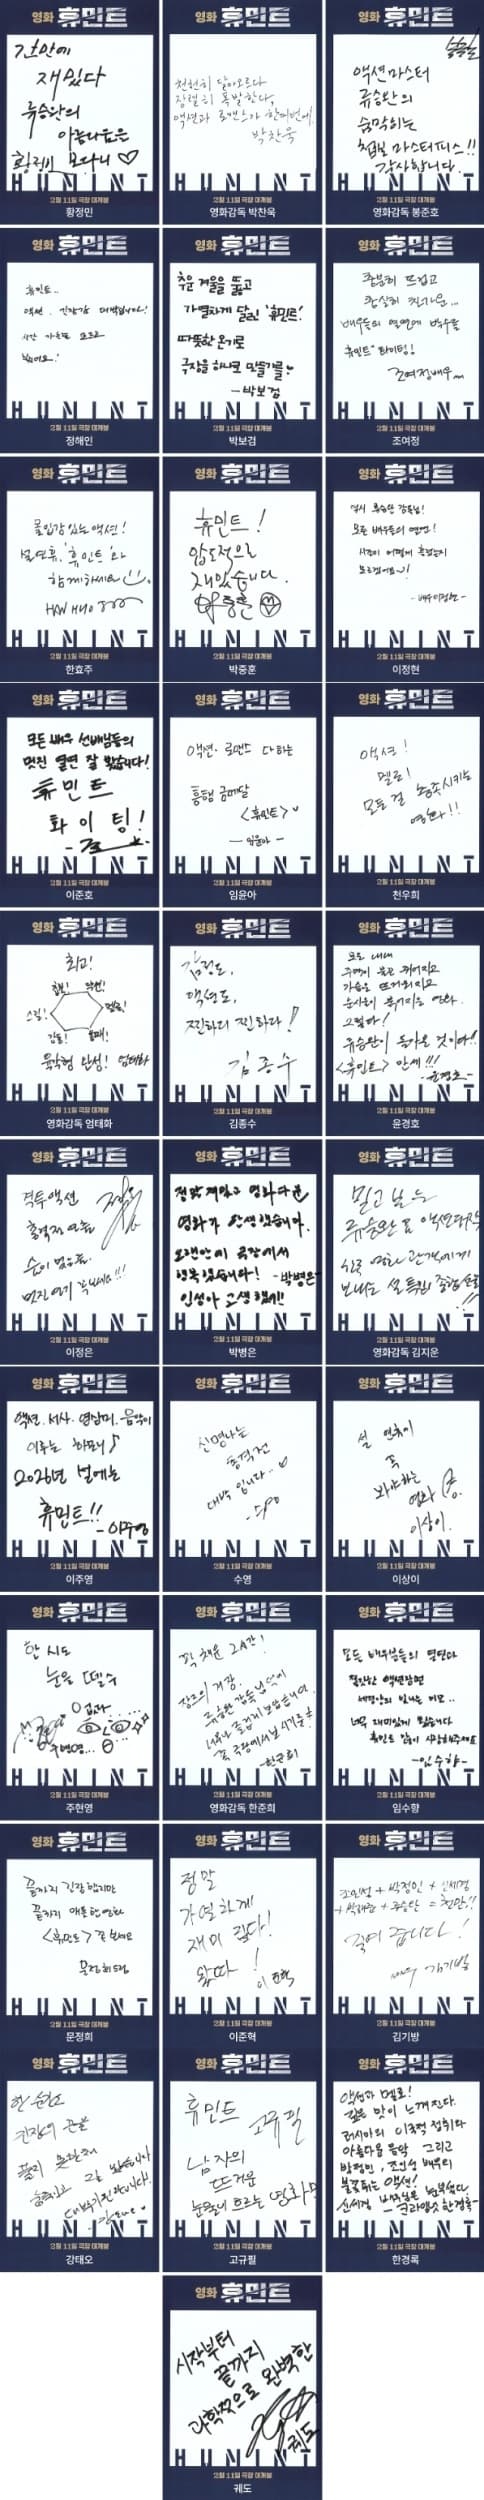 영화 휴민트
간만에
재밌다
류승완의
아름다움은
황정민 모다니 ♡
HUMINT
2월 11일 극장 대개봉
황정민
영화 휴민트
천천히 달아오르다
장렬히 폭발한다,
액션과 로맨스가 한화면에.
박찬욱
HUMINT
2월 11일 극장 대개봉
영화감독 박찬욱
영화 휴민트
액션마스터
류승완의
숨막히는
첩보 마스터피스!!
감사합니다.
HUMINT
2월 11일 극장 대개봉
영화감독 봉준호
영화 휴민트
휴민트..
액션, 긴장감 대박입니다!
시간 가는줄 모르고
봤어요!
HUMINT
2월 11일 극장 대개봉
정해인
영화 휴민트
추운 겨울을 뚫고
가열차게 달릴 '휴민트'!
따뜻한 온기로
극장을 하나로 만들기를
-박보검
HUMINT
2월 11일 극장 대개봉
박보검
영화 휴민트
충분히 뜨겁고
배우들의 열연에 박수를
휴민트 화이팅!
조여정배우
HUMINT
2월 11일 극장 대개봉
조여정
영화 휴민트
몰입감있는 액션!
설연휴, '휴민트'와
함께하세요
HAN HYO JOO
HUMINT
2월 11일 극장 대개봉
한효주
영화 휴민트
휴민트!
압도적으로
재밌습니다.
박중훈
HUMINT
2월 11일 극장 대개봉
박중훈
영화 휴민트
역시 류승완 감독님!
모든 배우들의 열연!
시간이 어떻게 흘렀는지
모르겠어요!
-배우이정현-
HUMINT
2월 11일 극장 대개봉
이정현
영화 휴민트
모든 배우 선배님들의
멋진 열연 잘 봤습니다!
휴민트
화이팅!
HUMINT
2월 11일 극장 대개봉
이준호
영화 휴민트
액션. 로맨스 다하는
흥행 금메달
<휴민트>
-임윤아-
HUMINT
2월 11일 극장 대개봉
임윤아
영화 휴민트
액션!
멜로!
모든걸 충족시키는
영화!!
HUMINT
2월 11일 극장 대개봉
천우희
영화 휴민트
최고!
첩보! 액션!
스릴! 멜로!
감동!
육각형 완성! 엄태화
HUMINT
2월 11일 극장 대개봉
영화감독 엄태화
영화 휴민트
감정도,
액션도,
찐하디 찐하다!
김종수
HUMINT
2월 11일 극장 대개봉
김종수
영화 휴민트
보는 내내
주먹이 불끈 쥐어지고
가슴은 뜨거워지고
눈시울이 붉어지는 영화.
그렇다!
류승완이 돌아온 것이다!!
<휴민트> 만세!!!
-윤경호-
HUMINT
2월 11일 극장 대개봉
윤경호
영화 휴민트
격투액션
총격전 연출
숨이 멎을듯
멋진 연기 꼭 보세요!!!
HUMINT
2월 11일 극장 대개봉
이정은
영화 휴민트
정말 재밌고 영화다운
영화가 탄생했습니다.
오랜만에 극장에서
행복했습니다! -박병은-
인성아 고생했어!!
HUMINT
2월 11일 극장 대개봉
박병은
영화 휴민트
믿고 보는
류승완 표 액션대작
한국 영화 관객에게
보내는 설 특집 종합 선물!!!
HUMINT
2월 11일 극장 대개봉
영화감독 김지운
영화 휴민트
액션. 서사. 영상미. 음악이
이루는 하모니♪
2026년 설에는
휴민트!! -이주영
HUMINT
2월 11일 극장 대개봉
이주영
영화 휴민트
신명나는
총격전
대박 입니다..
HUMINT
2월 11일 극장 대개봉
수영
영화 휴민트
설 연휴에
꼭
봐야하는
영화
이상이.
HUMINT
2월 11일 극장 대개봉
이상이
영화 휴민트
한 시도
눈을 뗄수
없다
주현영...
HUMINT
2월 11일 극장 대개봉
주현영
영화 휴민트
꽉 채운 2시간!
장르의 쾌감.
류승완 감독님 덕에
너무나 즐겁게 보았습니다.
꼭 극장에서
-한준희
HUMINT
2월 11일 극장 대개봉
영화감독 한준희
영화 휴민트
모든 배우분들의 열연과
절묘한 액션장면
너무 재미있게 봤습니다
휴민트 많이 사랑해주세요
-임수향-
HUMINT
2월 11일 극장 대개봉
임수향
영화 휴민트
끝까지 긴장했지만
끝까지 애틋한 영화
<휴민트> 꼭 보세요
문정희드림
HUMINT
2월 11일 극장 대개봉
문정희
영화 휴민트
정말
가열하게
재미있다!
왔따!
이준혁
HUMINT
2월 11일 극장 대개봉
이준혁
영화 휴민트
조인성+박정민+신세경
+박해준+류승완=천만!!
죽여 줍니다!
배우 김기방
HUMINT
2월 11일 극장 대개봉
김기방
영화 휴민트
한 순간도
긴장의 끈을
놓지 못한채
숨죽이고 그들을 보았습니다
대박기원합니다!
HUMINT
2월 11일 극장 대개봉
강태오
영화 휴민트
휴민트 고규필
남자의
뜨거운
눈물이 흐르는 영화
HUMINT
2월 11일 극장 대개봉
고규필
영화 휴민트
액션과 멜로!
깊은 맛이 느껴진다.
러시아의 이국적 정취와
아름다운 음악 그리고
박정민, 조인성 배우의
불꽃튀는 액션!
신세경 배우님은 눈부셨다
-크라잉넛 한경록-
HUMINT
2월 11일 극장 대개봉
한경록
영화 휴민트
시작부터
끝까지
과학적으로 완벽한
궤도
HUMINT
2월 11일 극장 대개봉
궤도